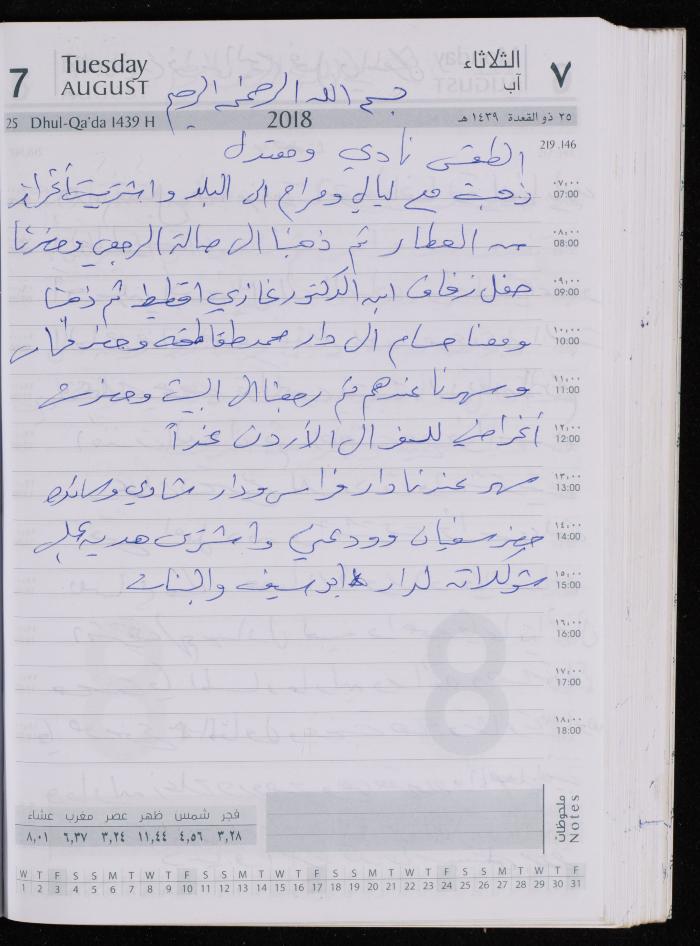 7 Tuesday AUGUST الثلاثاء آب ٧
بسم الله الرحمن الرحيم
25 Dhul-Qa'da 1439 H 2018 ٢٥ ذو القعدة ١٤٣٩ هـ
الطقس نادي ومعتدل 219 .146
ذهبت مع ليالي ومراح الى البلد واشتريت أغراض ٠٧,٠٠ 07:00
من العطار ثم ذهبنا الى صالة وحضرنا ٠٨,٠٠ 08:00
حفل زفاف ابن الدكتور غازي اقطيط ثم ذهبنا ٠٩,٠٠ 09:00
ومعنا حسام الى دار محمد طقاطقه ١٠,٠٠ 10:00
وسهرنا عندهم ثم رجعنا الى البيت وحضرت ١١,٠٠ 11:00
أغراضي للسفر الى الأردن غداً ١٢,٠٠ 12:00
سهر عندنا دار فراس ودار شادي ١٣,٠٠ 13:00
حضر سفيان وودعني واشترى هديه ١٤,٠٠ 14:00
شوكلاته لدار ابو سيف والبنات ١٥,٠٠ 15:00
١٦,٠٠ 16:00
١٧,٠٠ 17:00
١٨,٠٠ 18:00
ملحوظات Notes
فجر شمس ظهر عصر مغرب عشاء
٣,٢٨ ٤,٥٦ ١١,٤٤ ٣,٢٤ ٦,٣٧ ٨,٠١
W T F S S M T W T F S S M T W T F S S M T W T F S S M T W T F
1 2 3 4 5 6 7 8 9 10 11 12 13 14 15 16 17 18 19 20 21 22 23 24 25 26 27 28 29 30 31